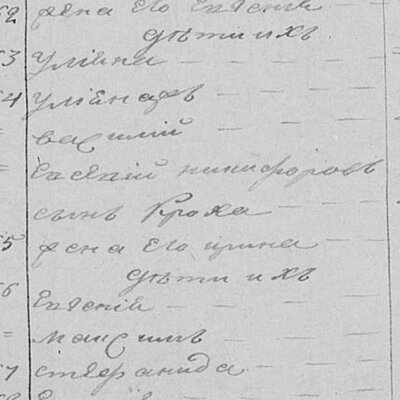 52 жена Его Евгенiя
дѣти ихъ
53 Улiяна
54 Улiянаж
= василiй
= Евсекiй никифоровъ
сынъ Кроха
55 жена Его ирина
дѣти ихъ
56 Евгенiй
= максимъ
57 стефанида